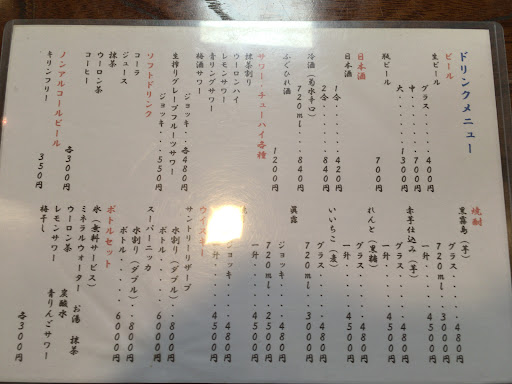 ドリンクメニュー
ビール
生ビール
グラス・・・400円
中・・・700円
大・・・1300円
瓶ビール
700円
日本酒
日本酒
1合・・・420円
2合・・・840円
冷酒（菊水辛口）
720ml・・・840円
ふぐひれ酒
1200円
サワー・チューハイ各種
抹茶割り
ウーロンハイ
レモンサワー
青リンゴサワー
梅酒サワー
ジョッキ・・各480円
生搾りグレープフルーツサワー
ジョッキ・・・550円
ソフトドリンク
コーラ
ジュース
抹茶
ウーロン茶
コーヒー
各300円
ノンアルコールビール
キリンフリー
350円
焼酎
黒霧島（芋）
グラス・・・480円
720ml・・・3000円
一升・・・4500円
赤芋仕込み（芋）
グラス・・・480円
一升・・・4500円
れんと（黒糖）
グラス・・・480円
一升・・・4500円
いいちこ（麦）
グラス・・・480円
720ml・・・3000円
眞露
ジョッキ・・・480円
720ml・・・2500円
一升・・・4500円
ジョッキ・・・480円
一升・・・4500円
ウイスキー
サントリーリザーブ
水割り（ダブル）・・800円
ボトル・・・6000円
スーパーニッカ
水割り（ダブル）・・800円
ボトル・・・6000円
ボトルセット
氷（無料サービス）
ミネラルウォーター
お湯
抹茶
ウーロン茶
炭酸水
レモンサワー
青りんごサワー
梅干し
各300円